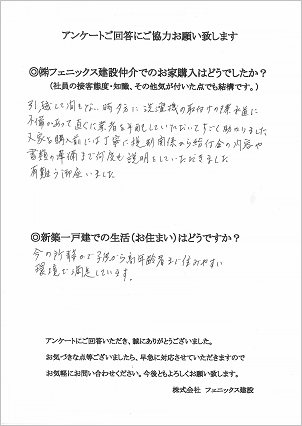 アンケートご回答にご協力お願い致します
◎㈱フェニックス建設仲介でのお家購入はどうでしたか？
（社員の接客態度・知識、その他気が付いた点でも結構です。）
引越して間もない時すぐに洗濯機の取付けの際水道に
不備があって直ぐに業者を手配していただいてすごく助かりました
又家を購入前には丁寧に税制関係から給付金の内容や
書類の準備まで何度も説明をしていただきました
有難う御座いました
◎新築一戸建での生活（お住まい）はどうですか？
今の所静かで子供から高年齢者まで住みやすい
環境で満足しています。
アンケートにご回答いただき、誠にありがとうございました。
お気づきな点等ございましたら、早急に対応させていただきますので
お気軽にお問い合わせください。今後ともよろしくお願い致します。
株式会社 フェニックス建設